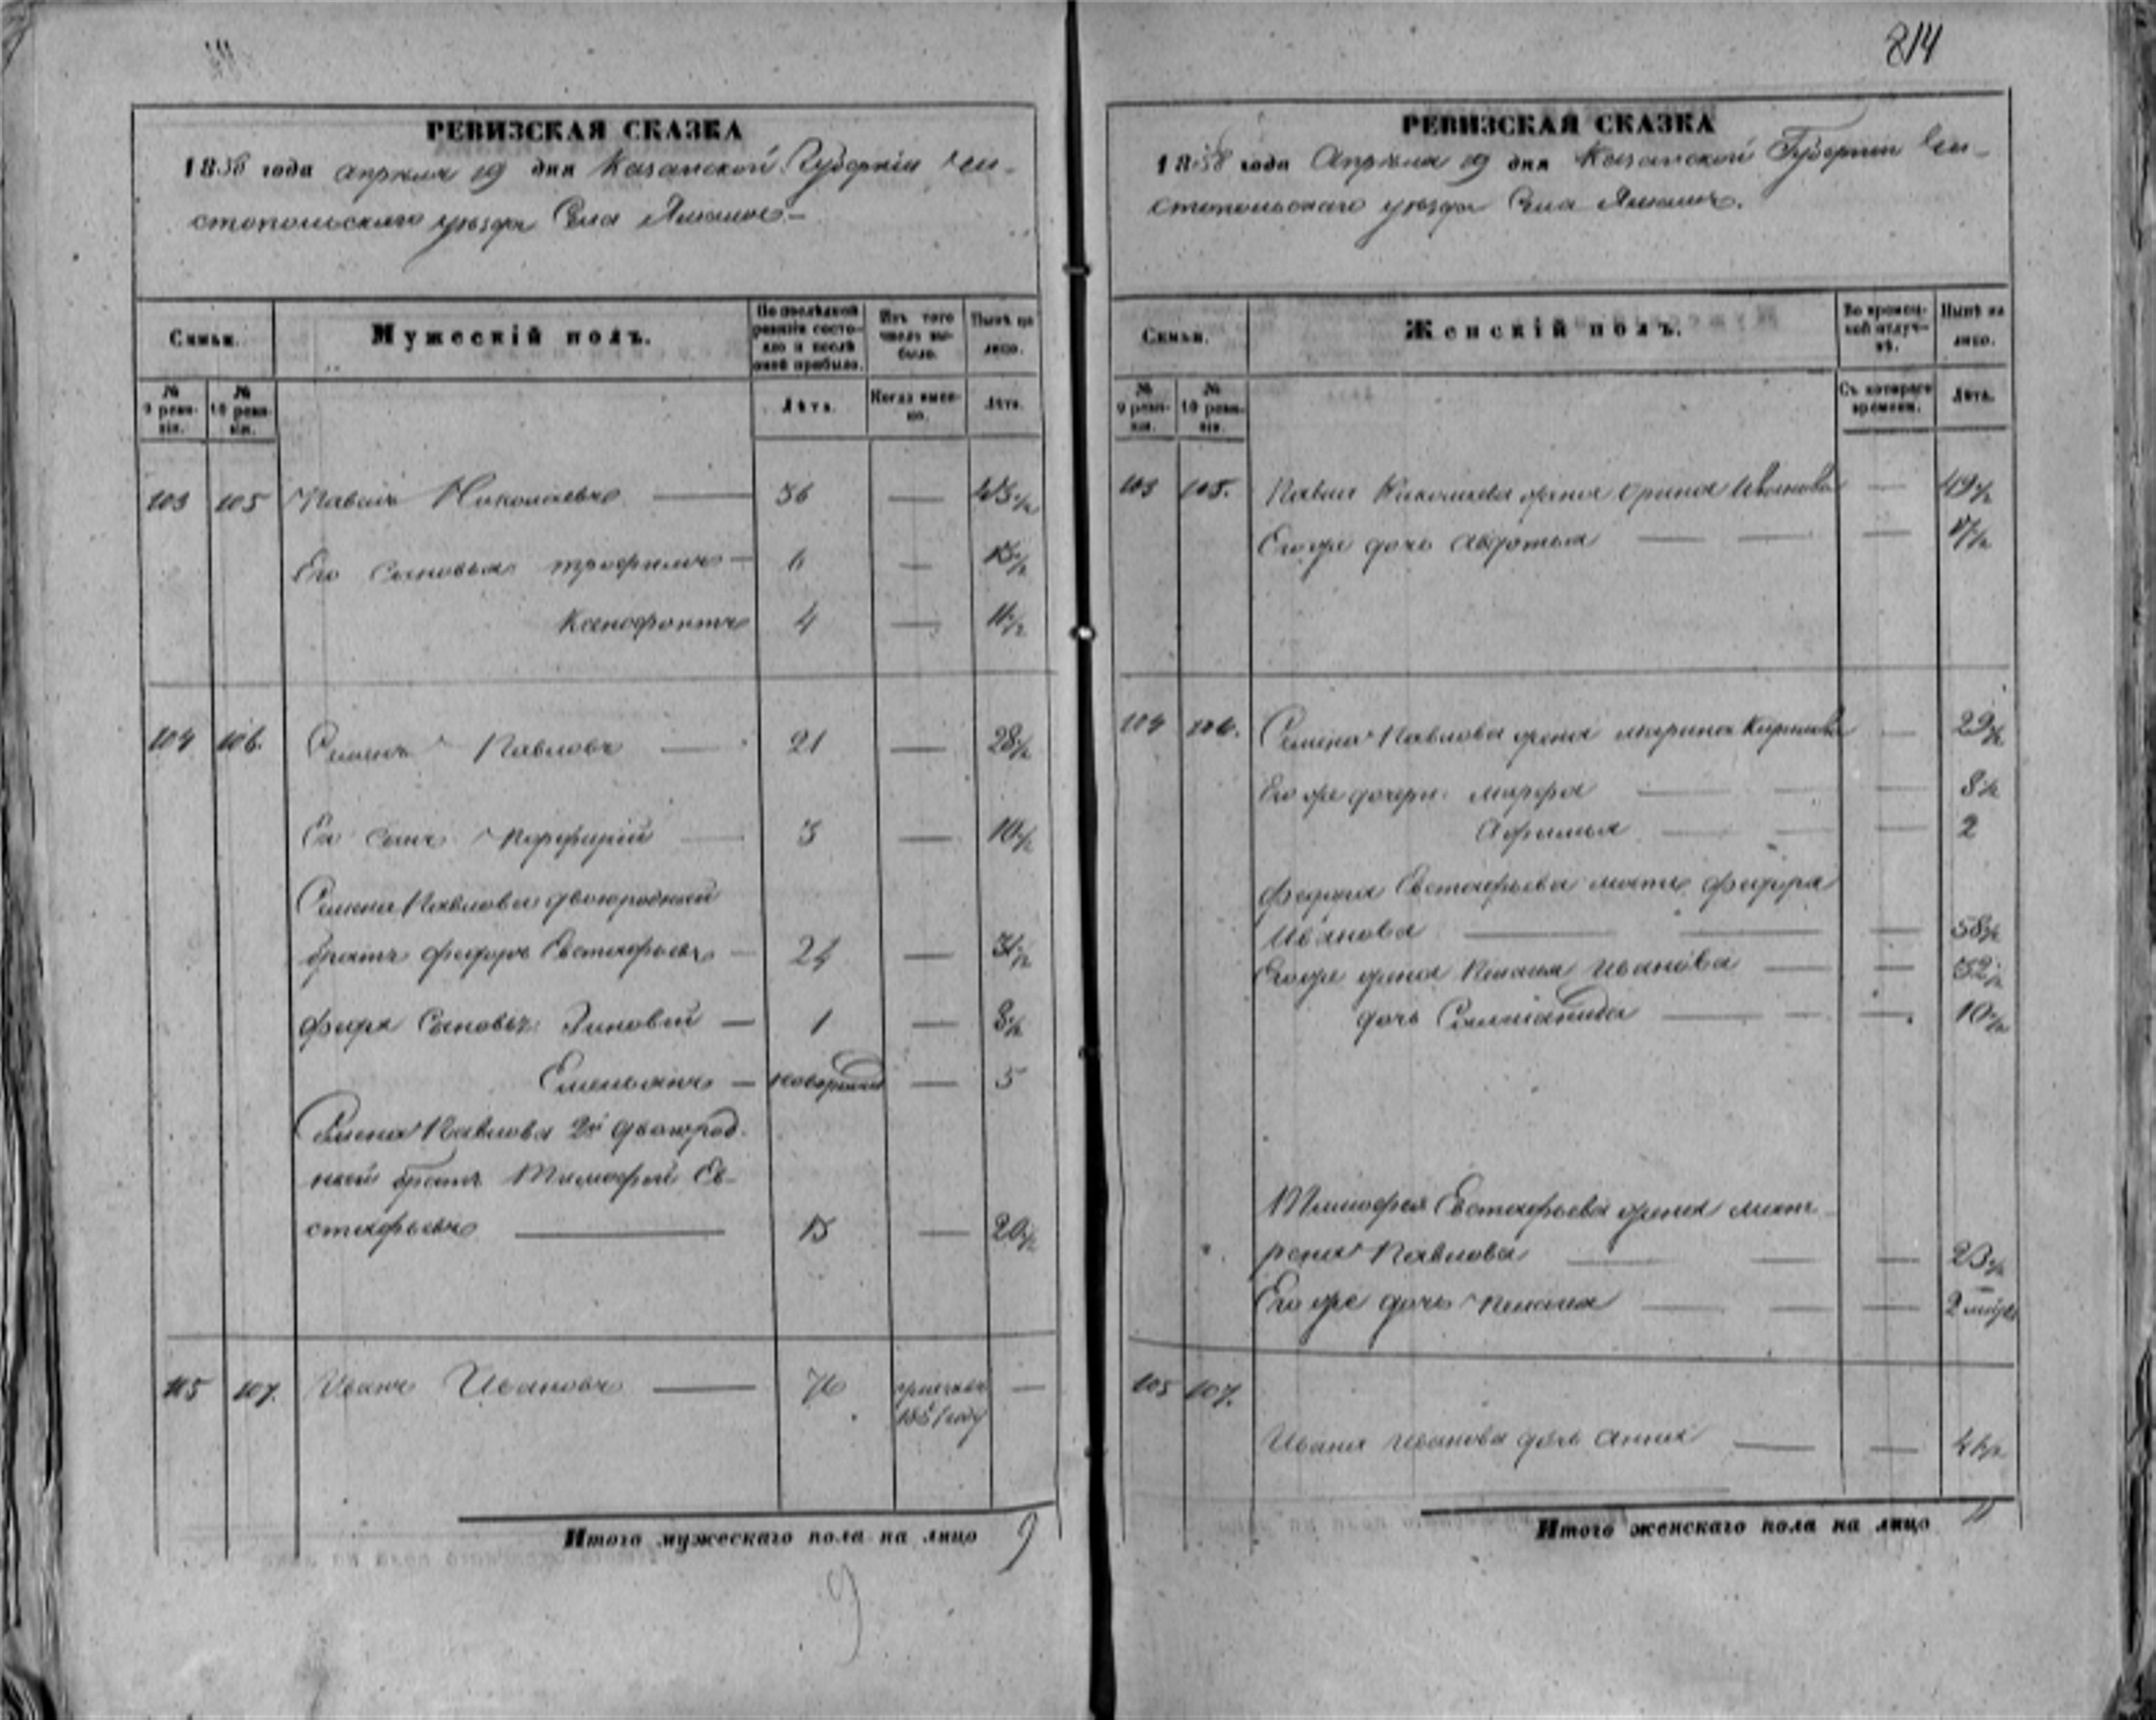 814
РЕВИЗСКАЯ СКАЗКА
1858 года апреля 19 дня Казанской Губерніи Чи-
стопольскаго уѣзда Села
Семьи.
Мужескій полъ.
По послѣдней ревизіи состояло и послѣ оной прибыло.
Изъ того числа выбыло.
Нынѣ на лицо.
№ 9 ревизіи.
№ 10 ревизіи.
Лѣта.
Когда именно.
Лѣта.
103 105 Павелъ Николаевъ — 36 — 43½
Его Сыновья Трофимъ — 6 — 13½
Ксенофонтъ 4 — 11½
104 106. Семенъ Павловъ — 21 — 28½
Ев Сынъ Порфирій — 3 — 10½
Семена Павлова двоюродный
братъ Федоръ Евстафьевъ — 24 — 31½
Сыновья: Зиновій — 1 — 8½
Емельянъ — новорожд — 5
Семена Павлова 2й двоюрод-
ный братъ Тимофей Ев-
стафьевъ — 13 — 20½
105 107. Иванъ Ивановъ — 76 —
1851 году
Итого мужескаго пола на лицо 9
9
РЕВИЗСКАЯ СКАЗКА
1858 года Апреля 19 дня Казанской Губерніи Чи-
стопольскаго уѣзда Села
Семьи.
Женскій полъ.
Во временной отлучкѣ.
Нынѣ на лицо.
№ 9 ревизіи.
№ 10 ревизіи.
Съ котораго времени.
Лѣта.
103 105. Павла Николаева жена Орина Иванова — 49½
Его же дочь Авдотья —
104 106. Семена Павлова жена Марина Кирилова — 29½
Его же дочери: Марфа — 8½
Афимья — 2
Федора Евстафьева мать Федора
Иванова — 58½
Его же жена Пелагея Иванова — 32½
дочь — 10½
Тимофея Евстафьева жена Мат-
рена Павлова — 23½
Его же дочь Пелагея — 2
105 107.
Ивана Иванова дочь Анна —
Итого женскаго пола на лицо 11